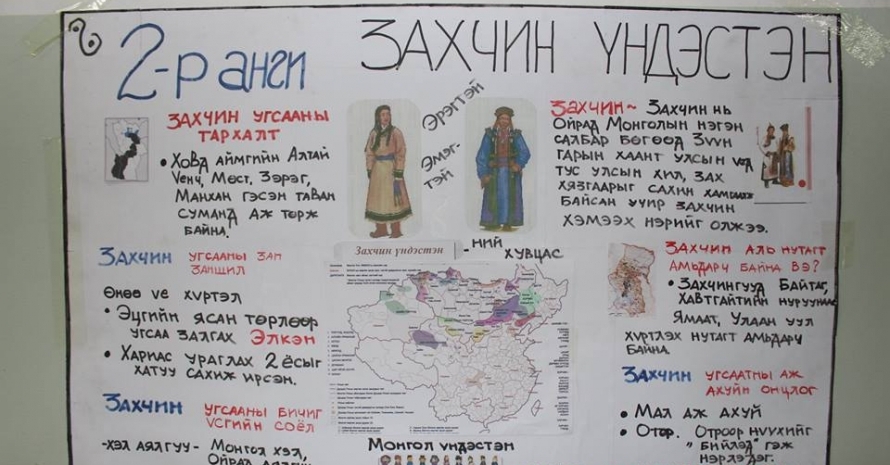 2-р анги
ЗАХЧИН ҮНДЭСТЭН
ЗАХЧИН УГСААНЫ
ТАРХАЛТ
• Ховд аймгийн Алтай
Үенч, Мөст, Зэрэг,
Манхан гэсэн таван
суманд аж төрж
байна.
Эрэгтэй
Эмэг-
тэй
-НИЙ
ХУВЦАС
ЗАХЧИН~ Захчин нь
Ойрад Монголын нэгэн
салбар бөгөөд Зүүн
гарын хаант улсын үед
тус улсын хил, зах
хязгаарыг сахин хамгаалж
байсан учир захчин
хэмээх нэрийг олжээ.
ЗАХЧИН угсааны зан
заншил
Өнөө үе хүртэл
• Эцгийн ясан төрлөөр
угсаа залгах Элкэн
• Хариас ураглах 2 ёсыг
хатуу сахиж ирсэн.
Захчин үндэстэн
Захчин аль нутагт
амьдарч байна вэ?
• Захчингууд Байтаг,
Хавтгайтийн нуруунаас
Ямаат, Улаан уул
хүртлэх нутагт амьдарч
байна.
ЗАХЧИН угсааны бичиг
үсгийн соёл
-хэл аялгуу- Монгол хэл,
Ойрад аялгуу
Монгол үндэстэн
ЗАХЧИН угсаатны аж
ахуйн онцлог
• Мал аж ахуй
• Отор. Отроор нүүхийг
"бийлэд" гэж
нэрлэдэг.